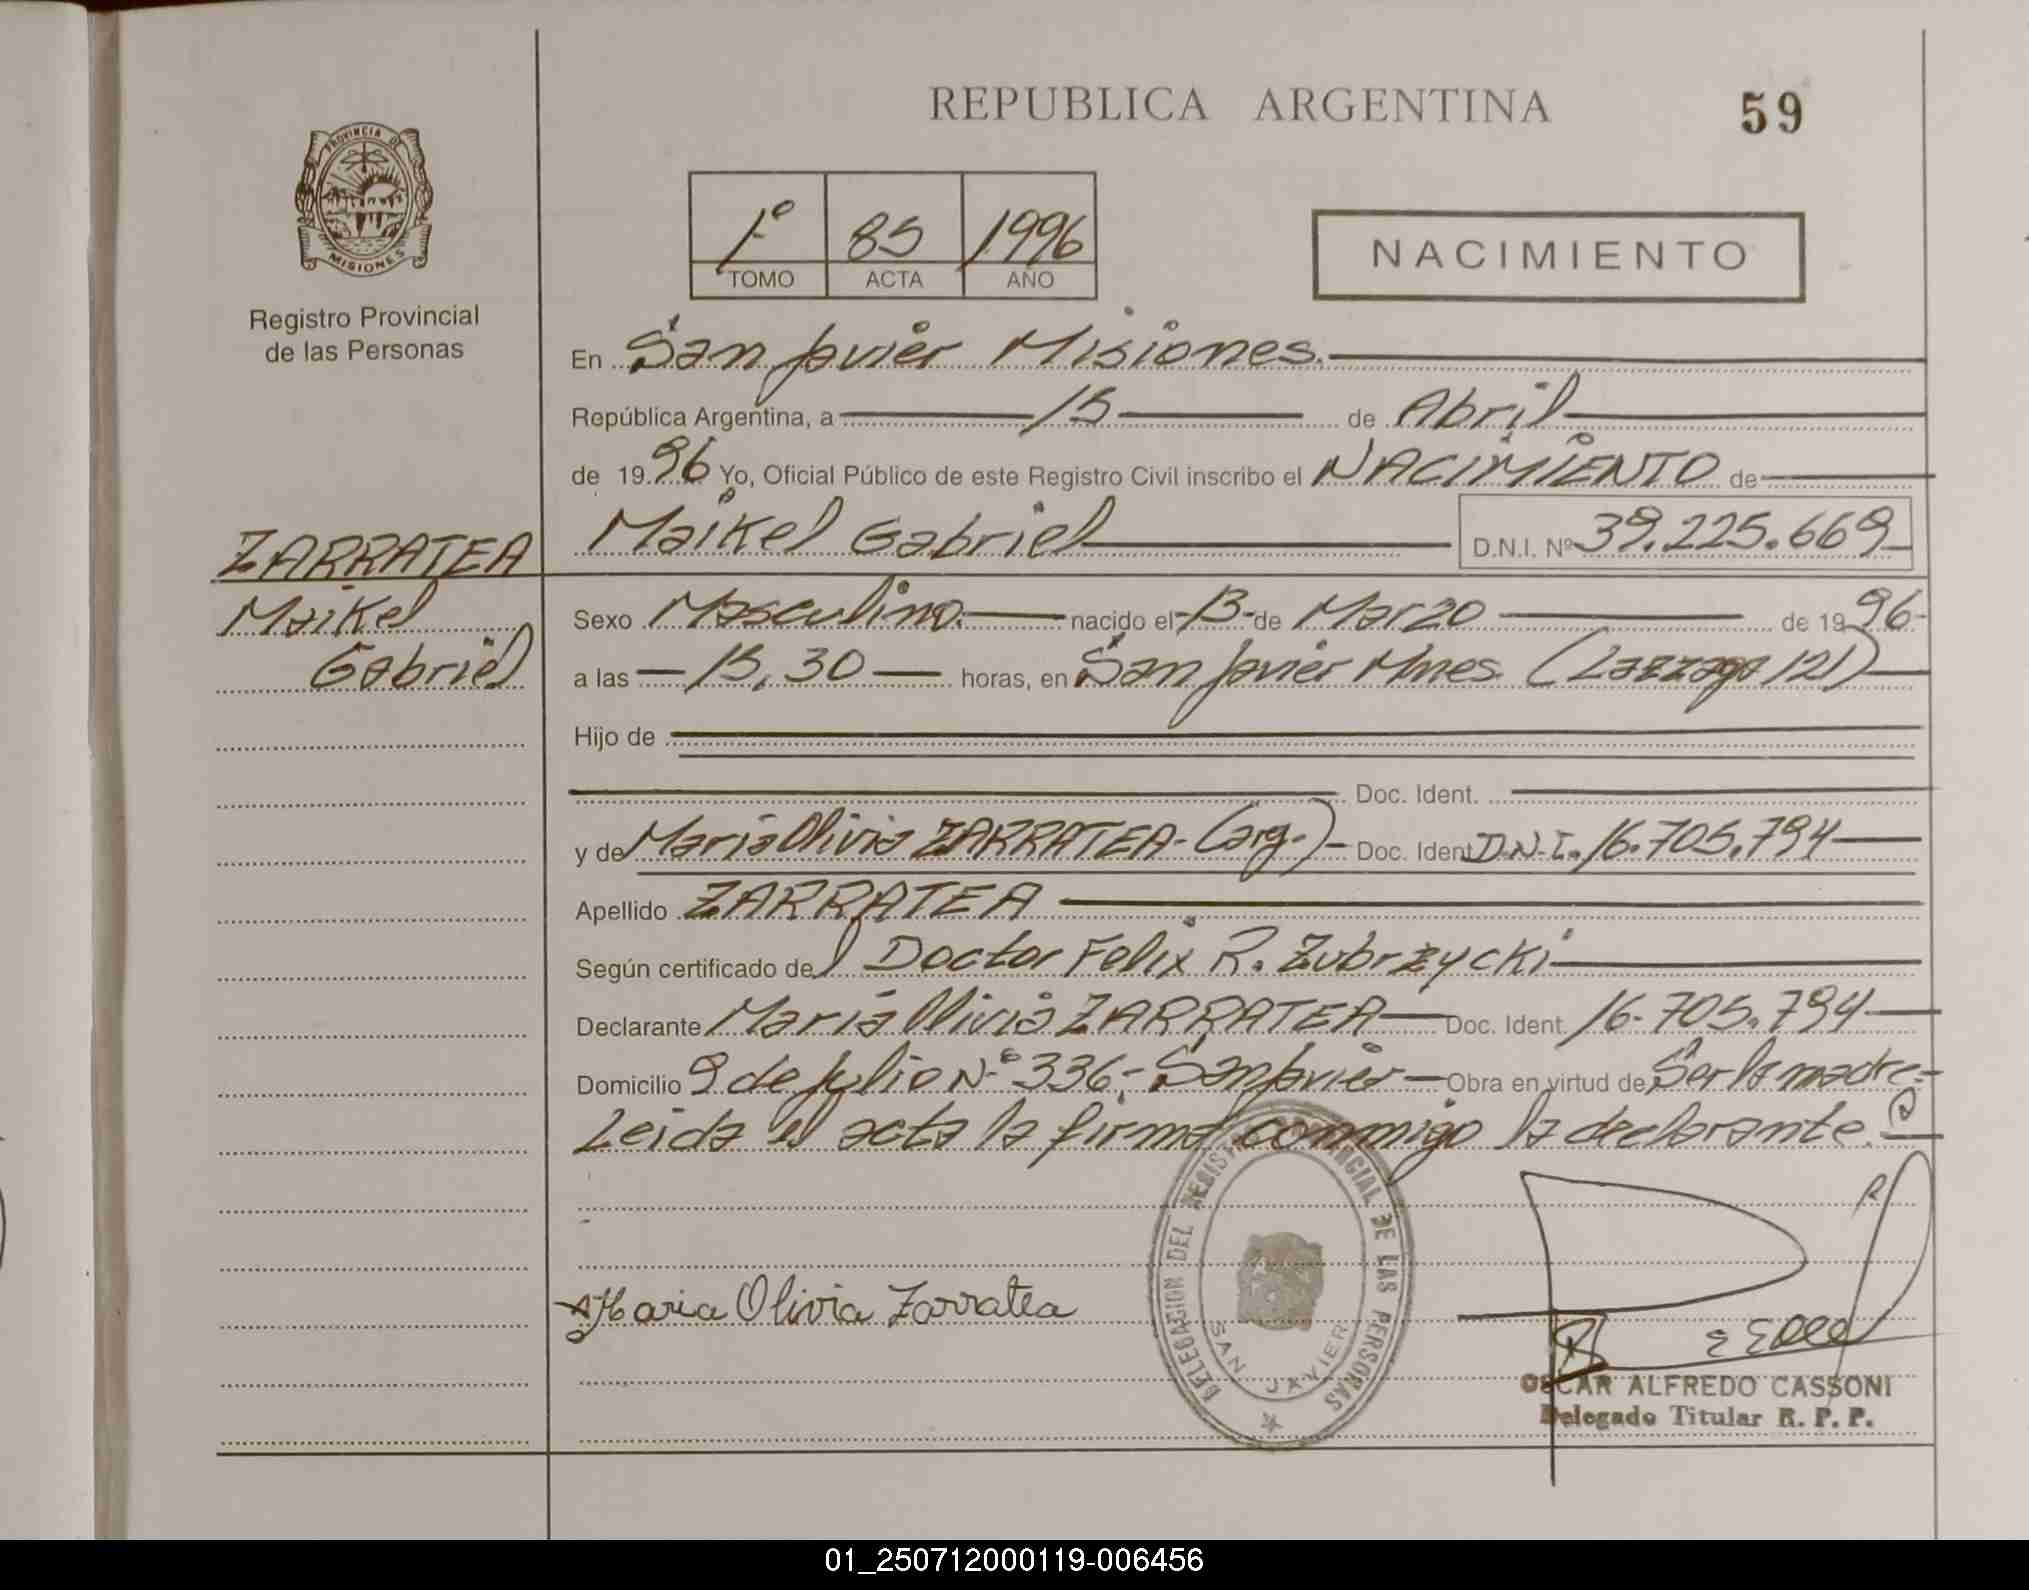 REPUBLICA ARGENTINA
59
PROVINCIA DE
MISIONES
Registro Provincial
de las Personas
1º 85 1996
TOMO ACTA AÑO
NACIMIENTO
En San Javier Misiones.
República Argentina, a 15 de Abril
de 1996 Yo, Oficial Público de este Registro Civil inscribo el NACIMIENTO de
Maikel Gabriel D.N.I. Nº 39.225.669
ZARRATEA
Maikel
Gabriel
Sexo Masculino. nacido el 13 de Marzo de 1996
a las 15,30 horas, en San Javier Mnes. (Lazzaga 121)
Hijo de
Doc. Ident.
y de María Olivia ZARRATEA- (arg.) Doc. Ident D.N.I. 16.705.794
Apellido ZARRATEA
Según certificado del Doctor Felix R. Zubrzycki
Declarante María Olivia ZARRATEA Doc. Ident. 16.705.794
Domicilio 9 de Julio Nº 336,- San Javier Obra en virtud de Ser la madre.-
Leida el acta la firma conmigo la declarante.
Maria Olivia Zarratea
DELEGACION DEL REGISTRO PROVINCIAL DE LAS PERSONAS
SAN JAVIER
OSCAR ALFREDO CASSONI
Delegado Titular R. P. P.
01_250712000119-006456